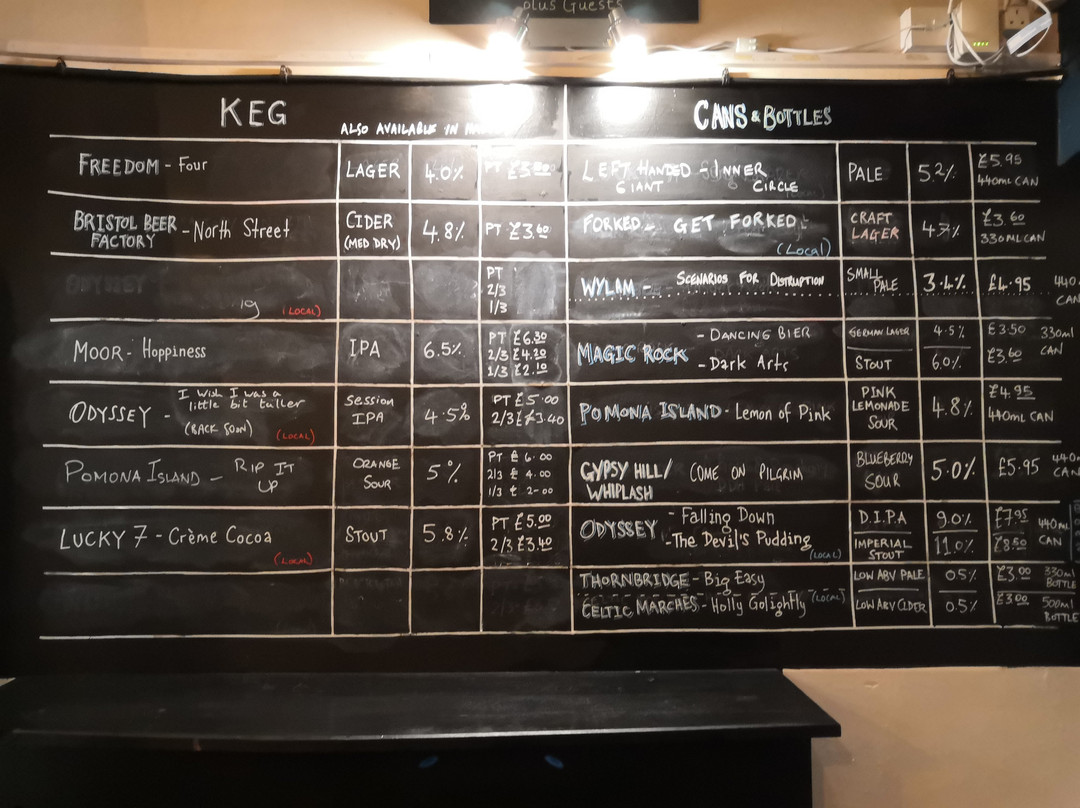 plus Guests
KEG
ALSO AVAILABLE IN
FREEDOM - Four
LAGER
4.0%
PT
BRISTOL BEER
FACTORY - North Street
CIDER
(MED DRY)
4.8%
PT £3.60
(LOCAL)
PT
2/3
1/3
MOOR - Hoppiness
IPA
6.5%
PT £6.30
2/3 £4.20
1/3 £2.10
ODYSSEY - I wish I was a
little bit taller
(BACK SOON)
(LOCAL)
Session
IPA
4.5%
PT £5.00
2/3 £3.40
POMONA ISLAND - RIP IT
UP
ORANGE
SOUR
5%
PT £6.00
2/3 £4.00
1/3 £2-00
LUCKY 7 - Crème Cocoa
(LOCAL)
STOUT
5.8%
PT £5.00
2/3 £3.40
CANS & BOTTLES
LEFT HANDED - INNER
GIANT CIRCLE
PALE
5.2%
£5.95
440ml CAN
FORKED - GET FORKED
(Local)
CRAFT
LAGER
4.7%
£3.60
330ML CAN
WYLAM - SCENARIOS FOR DISTRUPTION
SMALL
PALE
3.4%
£4.95
440
CAN
MAGIC ROCK
- DANCING BIER
GERMAN LAGER
4.5%
£3.50
- Dark Arts
STOUT
6.0%
£3.60
330ml
CAN
POMONA ISLAND - Lemon of Pink
PINK
LEMONADE
SOUR
4.8%
£4.95
440ml CAN
GYPSY HILL/
WHIPLASH
COME ON PILGRIM
BLUEBERRY
SOUR
5.0%
£5.95
440
CAN
ODYSSEY
- Falling Down
D.I.P.A
9.0%
£7.95
- The Devil's Pudding
(LOCAL)
IMPERIAL
STOUT
11.0%
£8.50
440ml
CAN
THORNBRIDGE - Big Easy
LOW ABV PALE
0.5%
£3.00
330ml
BOTTLE
CELTIC MARCHES - Holly Golightly (LOCAL)
LOW ABV CIDER
0.5%
£3.00
500ml
BOTTLE